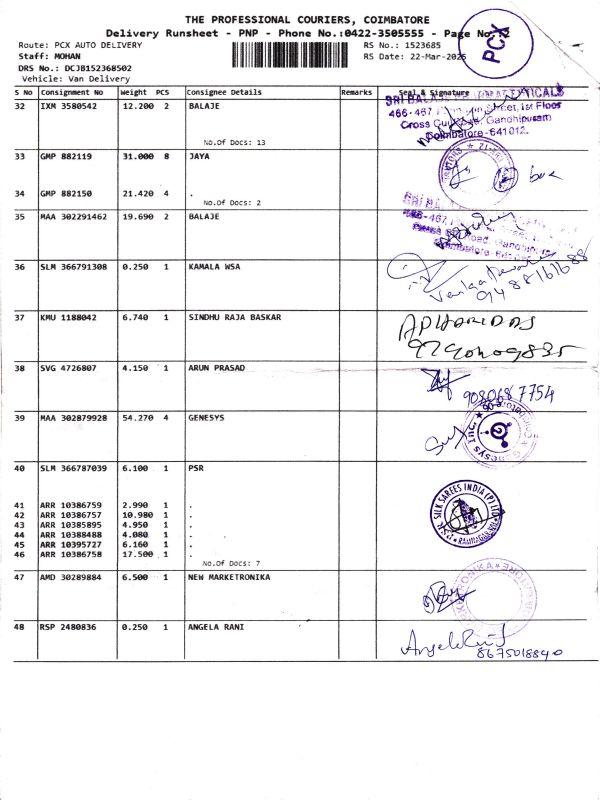 THE PROFESSIONAL COURIERS, COIMBATORE
Delivery Runsheet - PNP - Phone No.:0422-3505555 - Page No.
PCX
Route: PCX AUTO DELIVERY
RS No.: 1523685
Staff: MOHAN
RS Date: 22-Mar-2025
DRS No.: DCJB152368502
Vehicle: Van Delivery
S No Consignment No Weight PCS Consignee Details Remarks Seal & Signature
32 IXM 3580542 12.200 2 BALAJE
No.Of Docs: 13
466-467 Street, 1st Floor
Cross Cut Gandhipuram
Coimbatore-641012.
33 GMP 882119 31.000 8 JAYA
34 GMP 882150 21.420 4 .
No.Of Docs: 2
35 MAA 302291462 19.690 2 BALAJE
36 SLM 366791308 0.250 1 KAMALA WSA
37 KMU 1188042 6.740 1 SINDHU RAJA BASKAR
38 SVG 4726807 4.150 1 ARUN PRASAD
9080687754
39 MAA 302879928 54.270 4 GENESYS
Genesys Inc.
40 SLM 366787039 6.100 1 PSR
PSR SILK SAREES INDIA (P) LTD
41 ARR 10386759 2.990 1 .
42 ARR 10386757 10.980 1 .
43 ARR 10385895 4.950 1 .
44 ARR 10388488 4.080 1 .
45 ARR 10395727 6.160 1 .
46 ARR 10386758 17.500 1 .
No.Of Docs: 7
47 AMD 30289884 6.500 1 NEW MARKETRONIKA
48 RSP 2480836 0.250 1 ANGELA RANI
8675018840